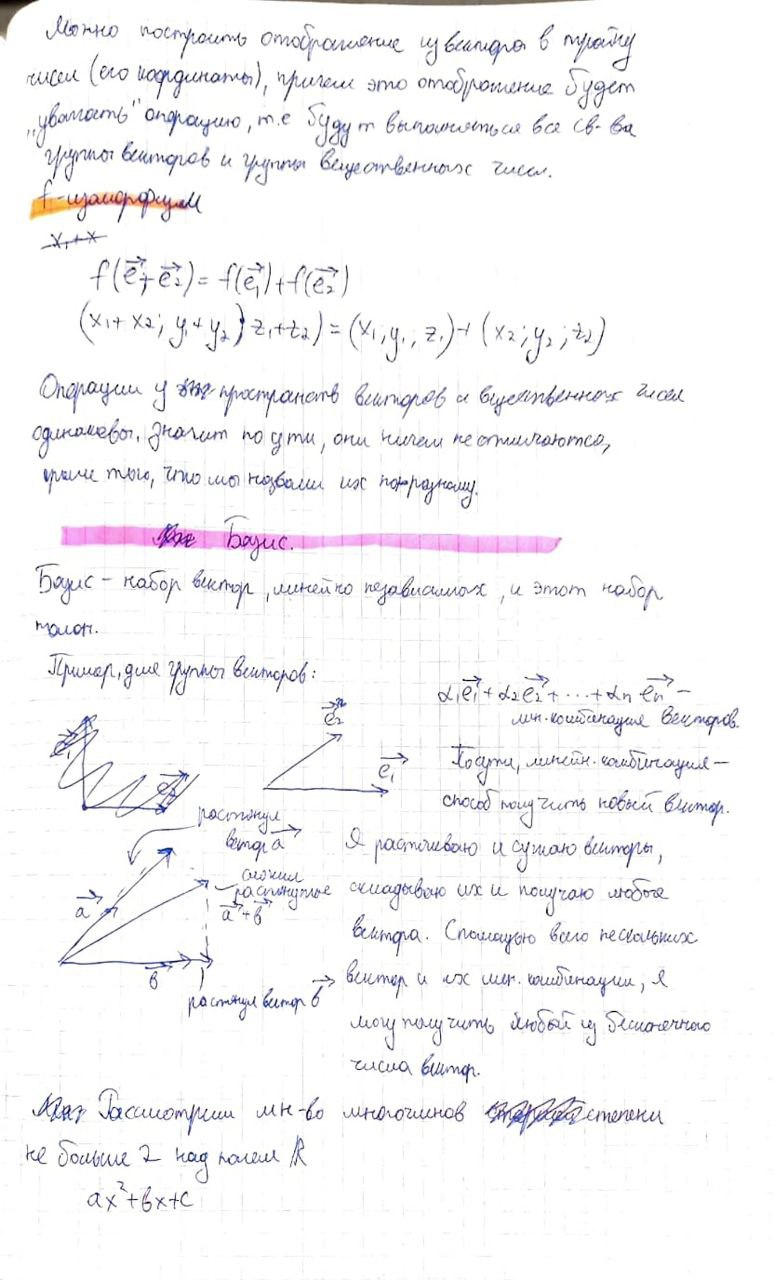 Можно построить отображение из вектора в тройку
чисел (его координаты), причем это отображение будет
„уважать" операцию, т.е будут выполняться все св-ва
группы векторов и группы вещественных чисел.
f - изоморфизм
x₁+x
f(e₁→ + e₂→) = f(e₁→) + f(e₂→)
(x₁+x₂; y₁+y₂; z₁+z₂) = (x₁; y₁; z₁) + (x₂; y₂; z₂)
Операции у пространств векторов и вещественных чисел
одинаковы, значит по сути, они ничем не отличаются,
кроме того, что мы назвали их по-разному.
Базис.
Базис - набор вектор, линейно независимых, и этот набор
полон.
Пример, для группы векторов:
α₁e₁→ + α₂e₂→ + ... + αn en→ -
лин. комбинация векторов.
e₂→
e₁→
По сути, линейн. комбинация -
способ получить новый вектор.
растянул
вектор a→
сложил
растянутые
a→ + b→
a→
b→
растянул вектор b→
Я растягиваю и сужаю векторы,
складываю их и получаю любые
вектора. С помощью всего нескольких
вектор и их лин. комбинации, я
могу получить любый из бесконечного
числа вектор.
Рассмотрим мн-во многочленов степени
не больше 2 над полем ℝ
ax²+bx+c